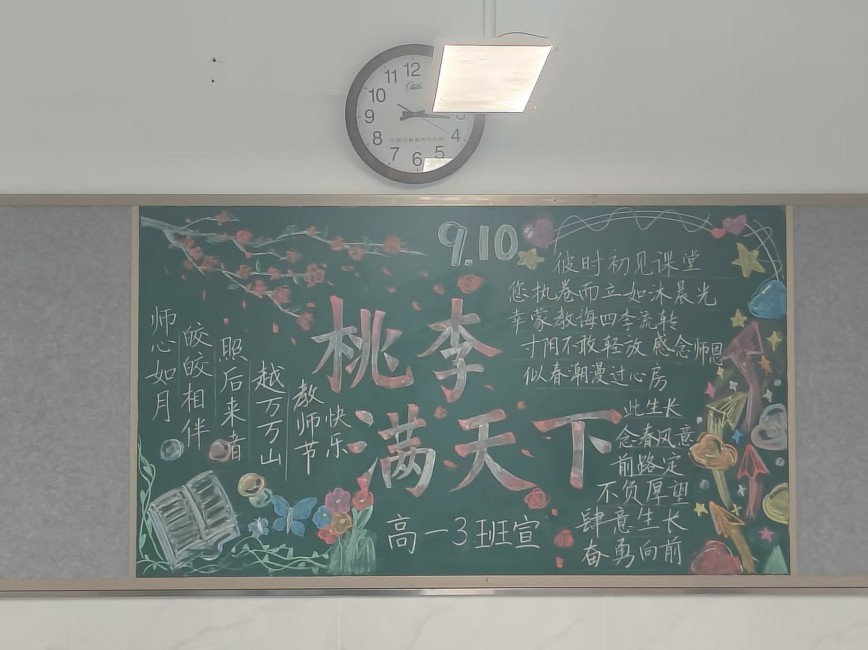 12
11
10
9
8
7
6
5
4
9.10
桃李
满天下
师心如月
皎皎相伴
照后来者
越万万山
教师节
快乐
彼时初见课堂
您执卷而立如沐晨光
幸蒙教诲四季流转
寸阴不敢轻放 感念师恩
似春潮漫过心房
此生长
念春风意
前路定
不负厚望
肆意生长
奋勇向前
高一3班宣